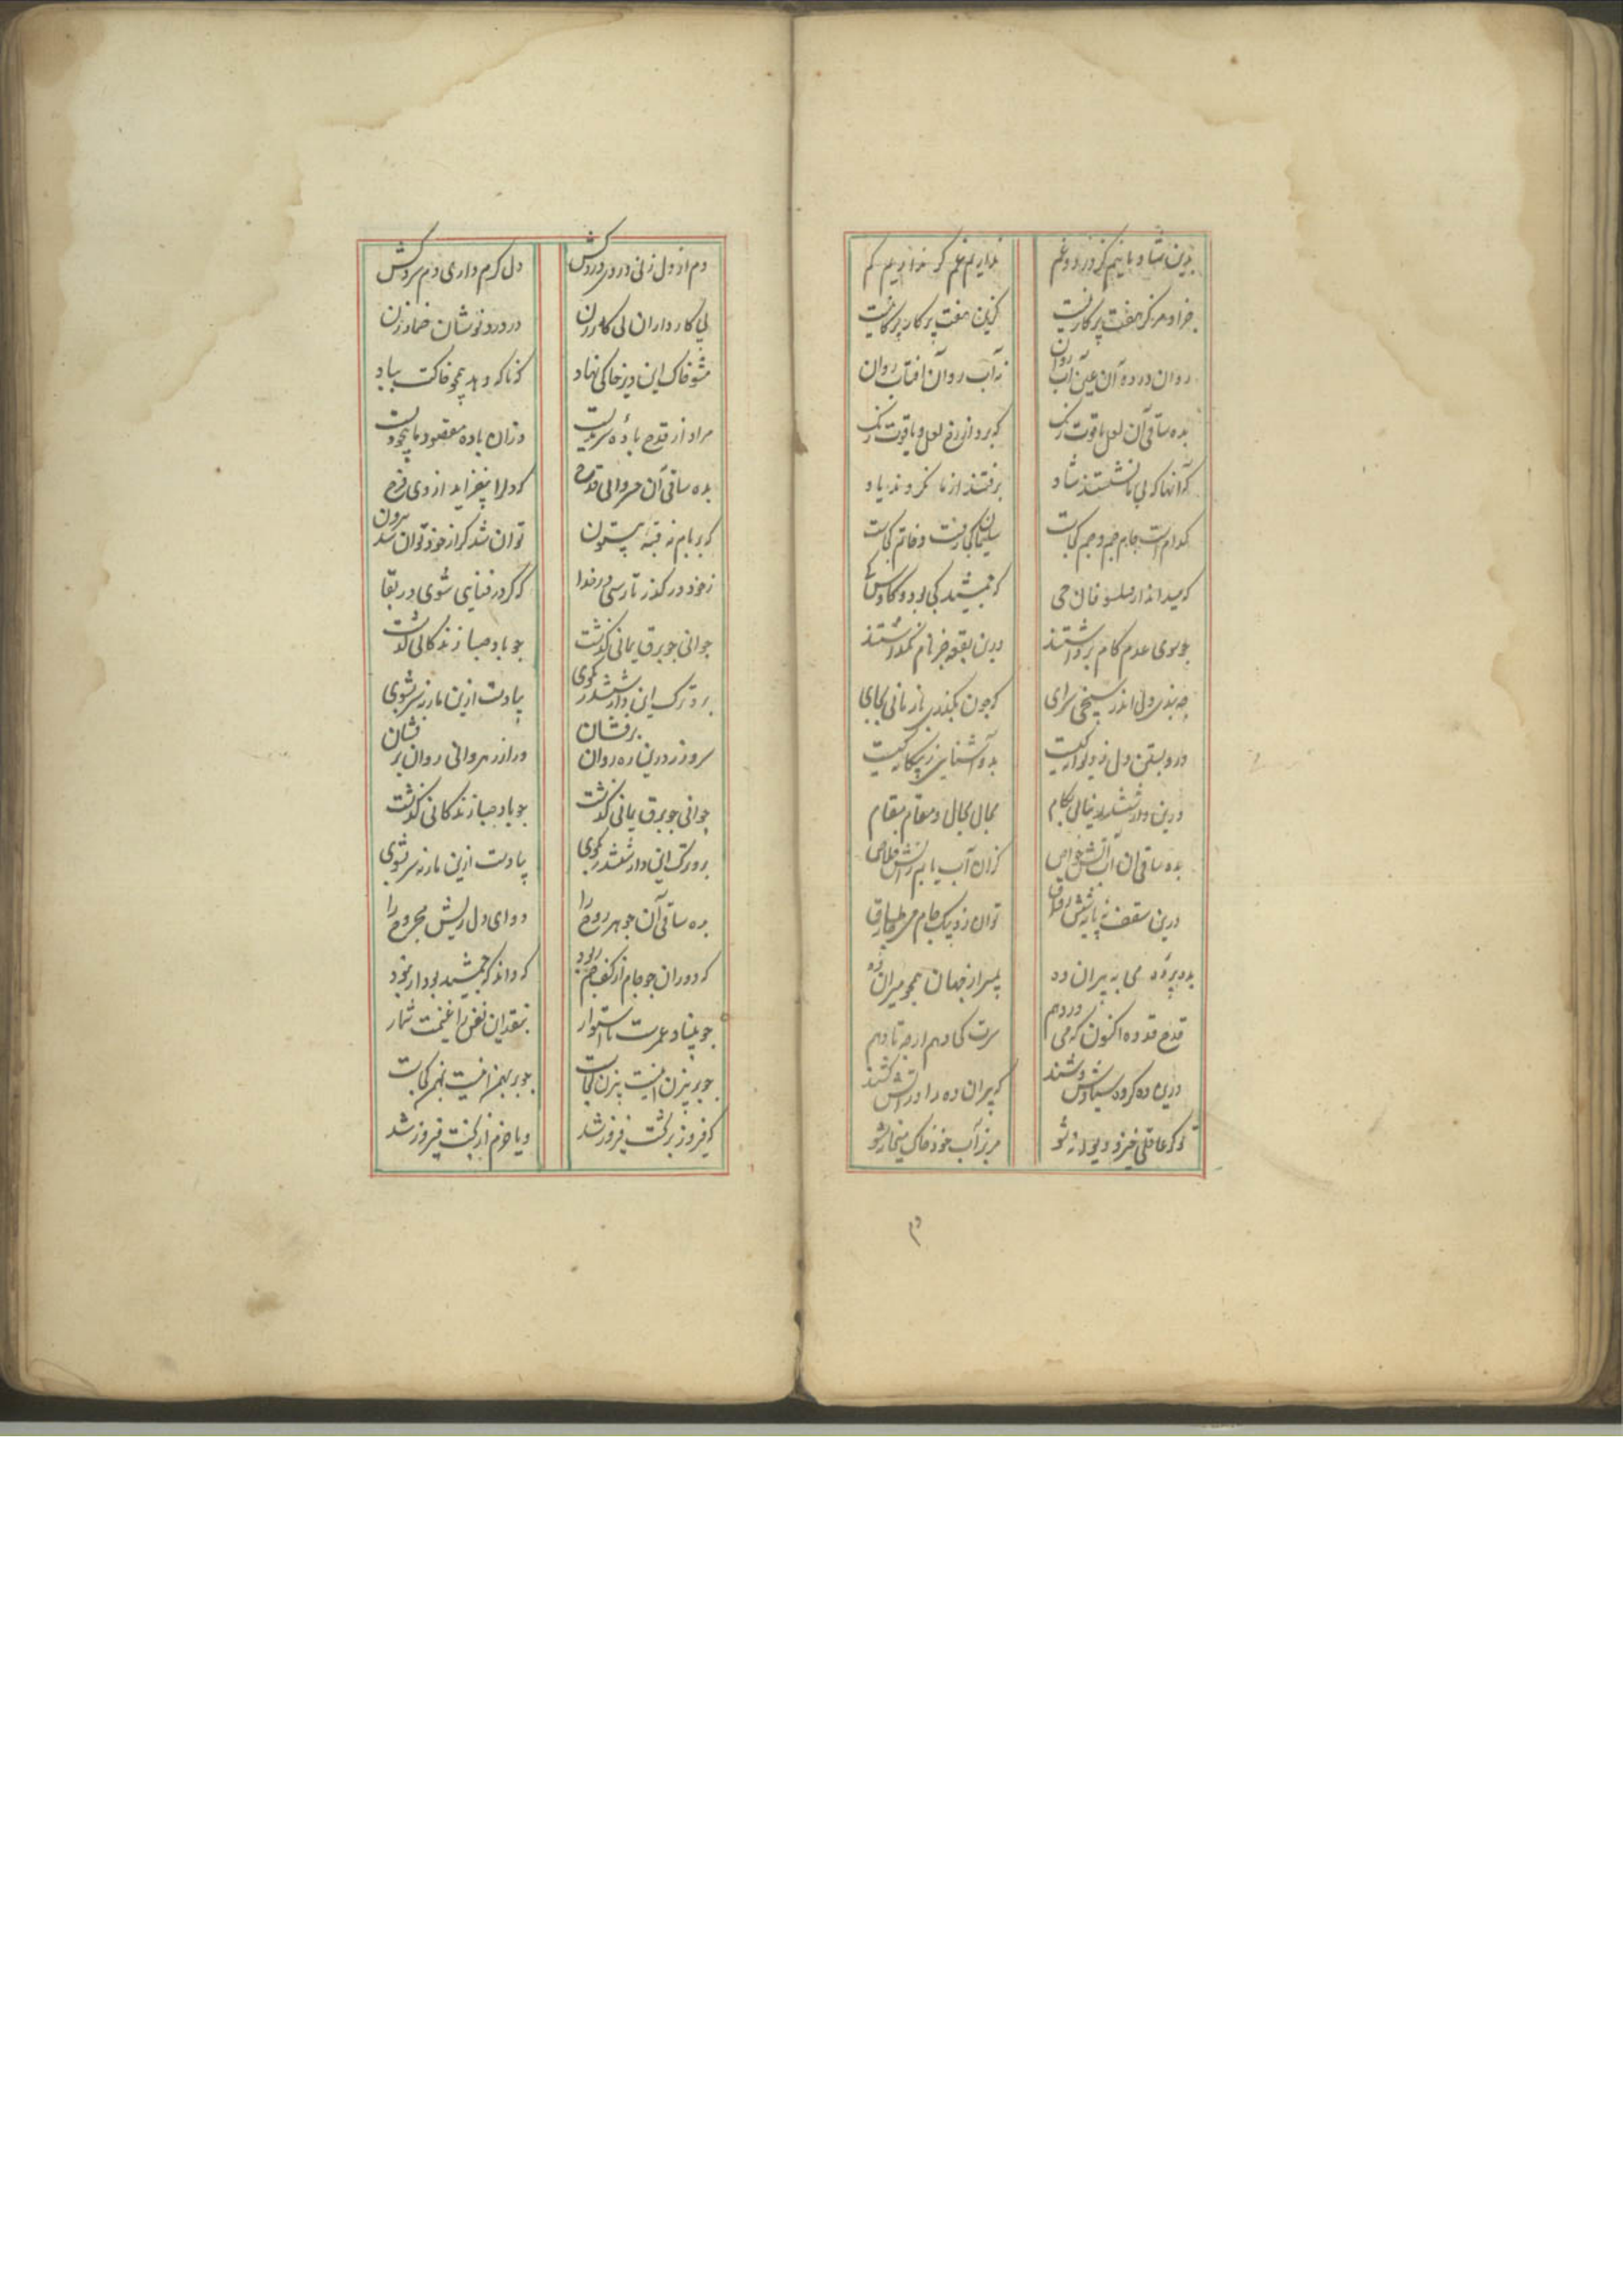 بدین شاد باشیم کز درد و غم نداریم غم گر نداریم کم
جز او مرکز هفت پرکار نیست کزین هفت پرکار بر کار نیست
روان در ده آن عین آب روان نه آب روان آفتاب روان
بده ساقی آن لعل یاقوت رنک که برد از رخ لعل و یاقوت رنک
که آنها که بی ما نشستند شاد برفتند از ما نکردند یاد
کدامست جام جم و جم کجاست سلیمان کجا رفت و خاتم کجاست
که میداند از فیلسوفان حی که جمشید کی بود و کاوس کی
چو سوی عدم کام برداشتند درین بقعه جز نام نکذاشتند
چه بندی دل اندر سپنجی سرای که چون بکذری باز نانی بجای
درو بستن دل ز دیوانکیست بدو آشنایی ز بیکانکیست
درین دار ششدر نیابی بکام مجال مجال و مقام مقام
بده ساقی آن آب آتش خواص کزان آب یابم ز آتش خلاص
درین سقف نه پایه شش رواق توان زد بیک جام می چارطاق
بده می به پیران ده جهان همچو میران ده
قدح در ده اکنون که می دردهم سرت کی دهم ارچه تا دهم
درین ده سیاوش وشند که پیران ده را در آتش کشند
تو کر عاقلی خیز و دیوانه شو مریز آب خود خاک میخانه شو
دم از دل زنی درد و دردی کش دل کرم داری و دم سرد کش
پی کار داران بی کار زن در دردنوشان خمار زن
مشو خاک این دیر خاکی نهاد که ناکه دهد همچو خاکت بباد
مراد از قدح باده سرمدیست وزان باده مقصود ما بیخودیست
بده ساقی آن خسروانی قدح که دلرا بیفزاید از وی فرح
که بر بام نه قبه بیستون توان شد کر از خود توان شد برون
ز خود در کذر تا رسی در خدا که کر در فنایی شوی در بقا
جوانی چو برق یمانی کذشت چو باد صبا زندکانی کذشت
برو ترک این دار ششدر بکوی بیا دست ازین مار نه سر بشوی
سر و زر درین ره روان برفشان ور از رهروانی روان برفشان
جوانی چو برق یمانی کذشت چو باد صبا زندکانی کذشت
برو ترک این دار ششدر بکوی بیا دست ازین مار نه سر بشوی
بده ساقی آن جوهر روح را دوای دل ریش مجروح را
که دوران چو جام از کف جم ربود که داند که جمشید بود ار نبود
چو بنیاد عمرت نااستوار بنقد این نفس را غنیمت شمار
چو بر بیزن افتیست بیزن کجاست چو بر بهمن افتیست بهمن کجاست
که فیروز برکشت فیروز شد و یا خرم از کشت فیروز شد